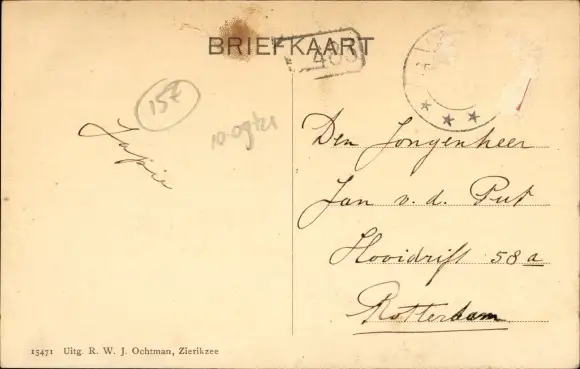 BRIEFKAART
403
15t
Japie
Den Jongenheer
Jan v. d. Put
Hooidrift 58a
Rotterdam
15471 Uitg. R. W. J. Ochtman, Zierikzee